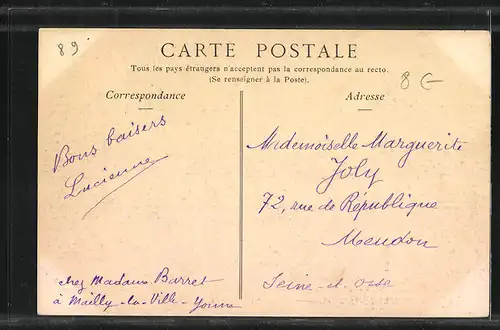 89
CARTE POSTALE
Tous les pays étrangers n'acceptent pas la correspondance au recto.
(Se renseigner à la Poste).
8 €
Correspondance
Adresse
Bons baisers
Lucienne
chez Madame Barret
à Mailly-la-Ville-Yonne
Mademoiselle Marguerite
Joly
72, rue de République
Meudon
Seine-et-Oise